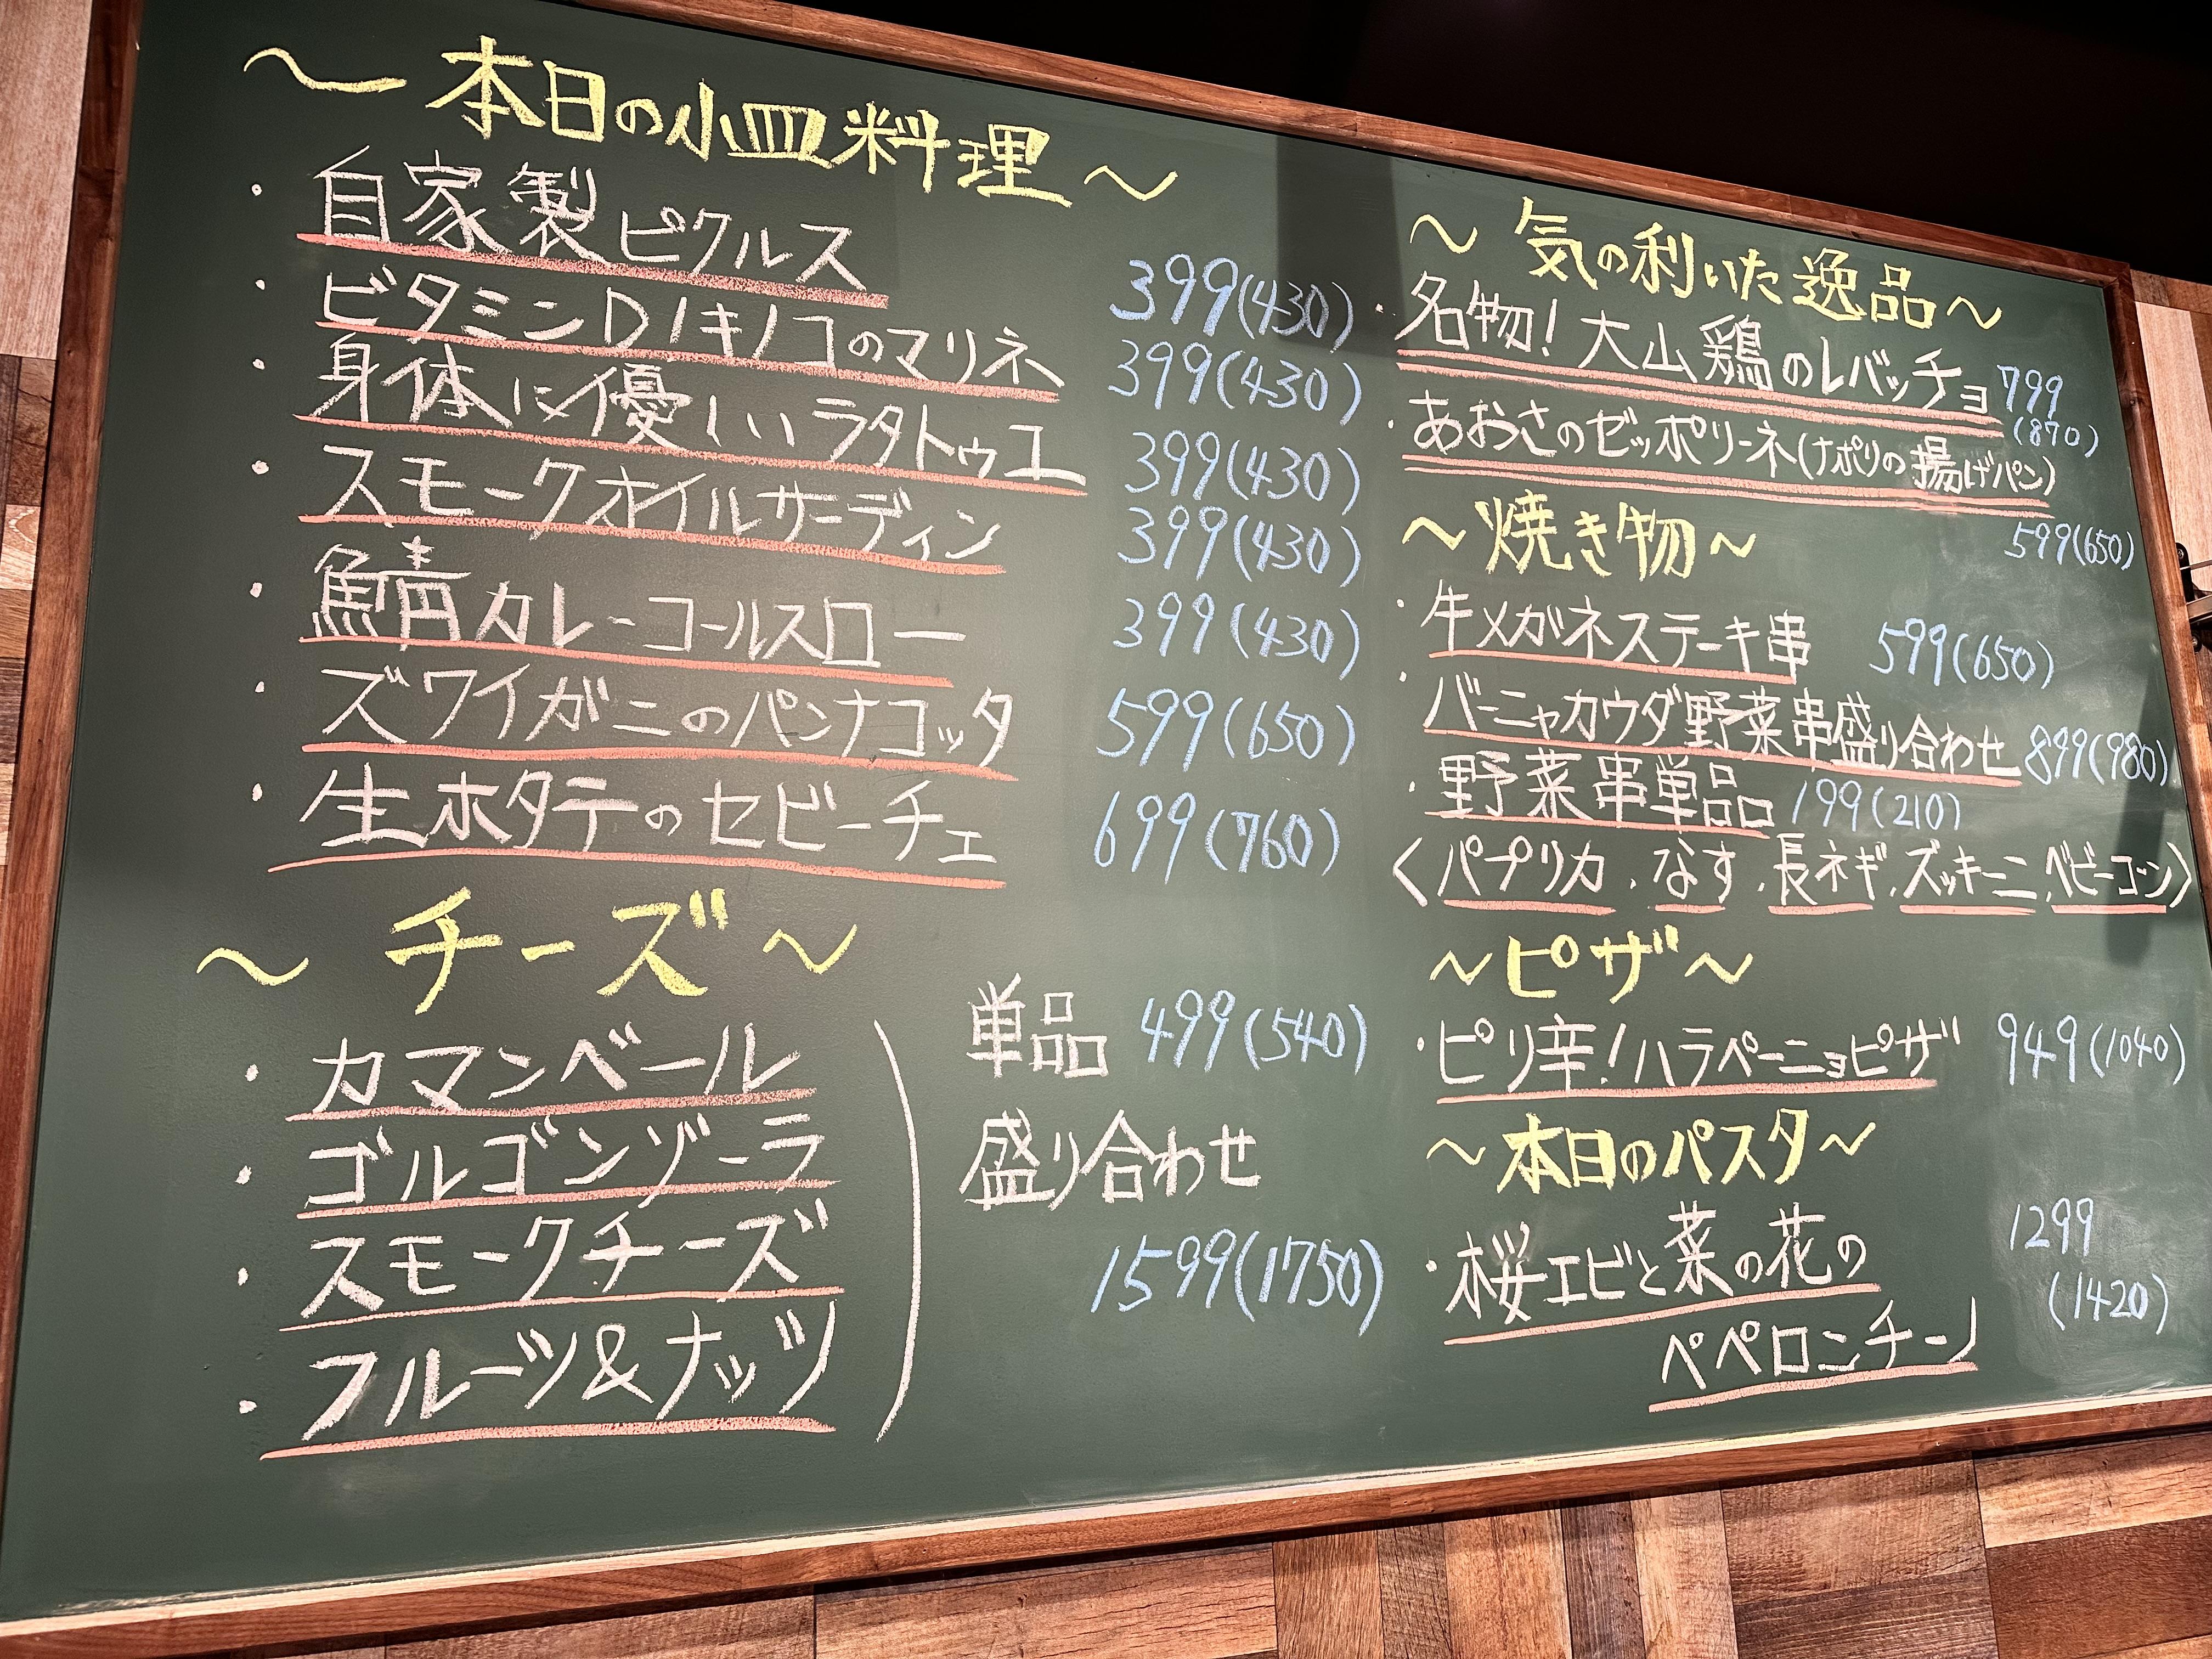 ～本日の小皿料理～
・自家製ピクルス 399(430)
・ビタミンD!キノコのマリネ 399(430)
・身体に優しいラタトゥユ 399(430)
・スモークオイルサーディン 399(430)
・鯖カレーコールスロー 399(430)
・ズワイガニのパンナコッタ 599(650)
・生ホタテのセビーチェ 699(760)
～チーズ～
・カマンベール
・ゴルゴンゾーラ
・スモークチーズ
・フルーツ&ナッツ
単品 499(540)
盛り合わせ
1599(1750)
～気の利いた逸品～
・名物!大山鶏のレバッチョ 799
(870)
・あおさのゼッポリーネ(ナポリの揚げパン)
599(650)
～焼き物～
・牛メガネステーキ串 599(650)
・バーニャカウダ野菜串盛り合わせ 899(980)
・野菜串単品 199(210)
〈パプリカ、なす、長ネギ、ズッキーニ、ベビーコーン〉
～ピザ～
・ピリ辛!ハラペーニョピザ 949(1040)
～本日のパスタ～
・桜エビと菜の花の 1299
(1420)
ペペロンチーノ